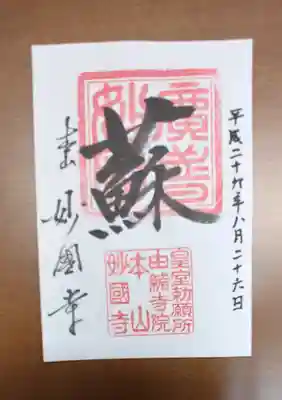 平成二十六年八月二十六日
蘇
皇室勅願所
由緒寺院
本山
妙國寺
妙國寺